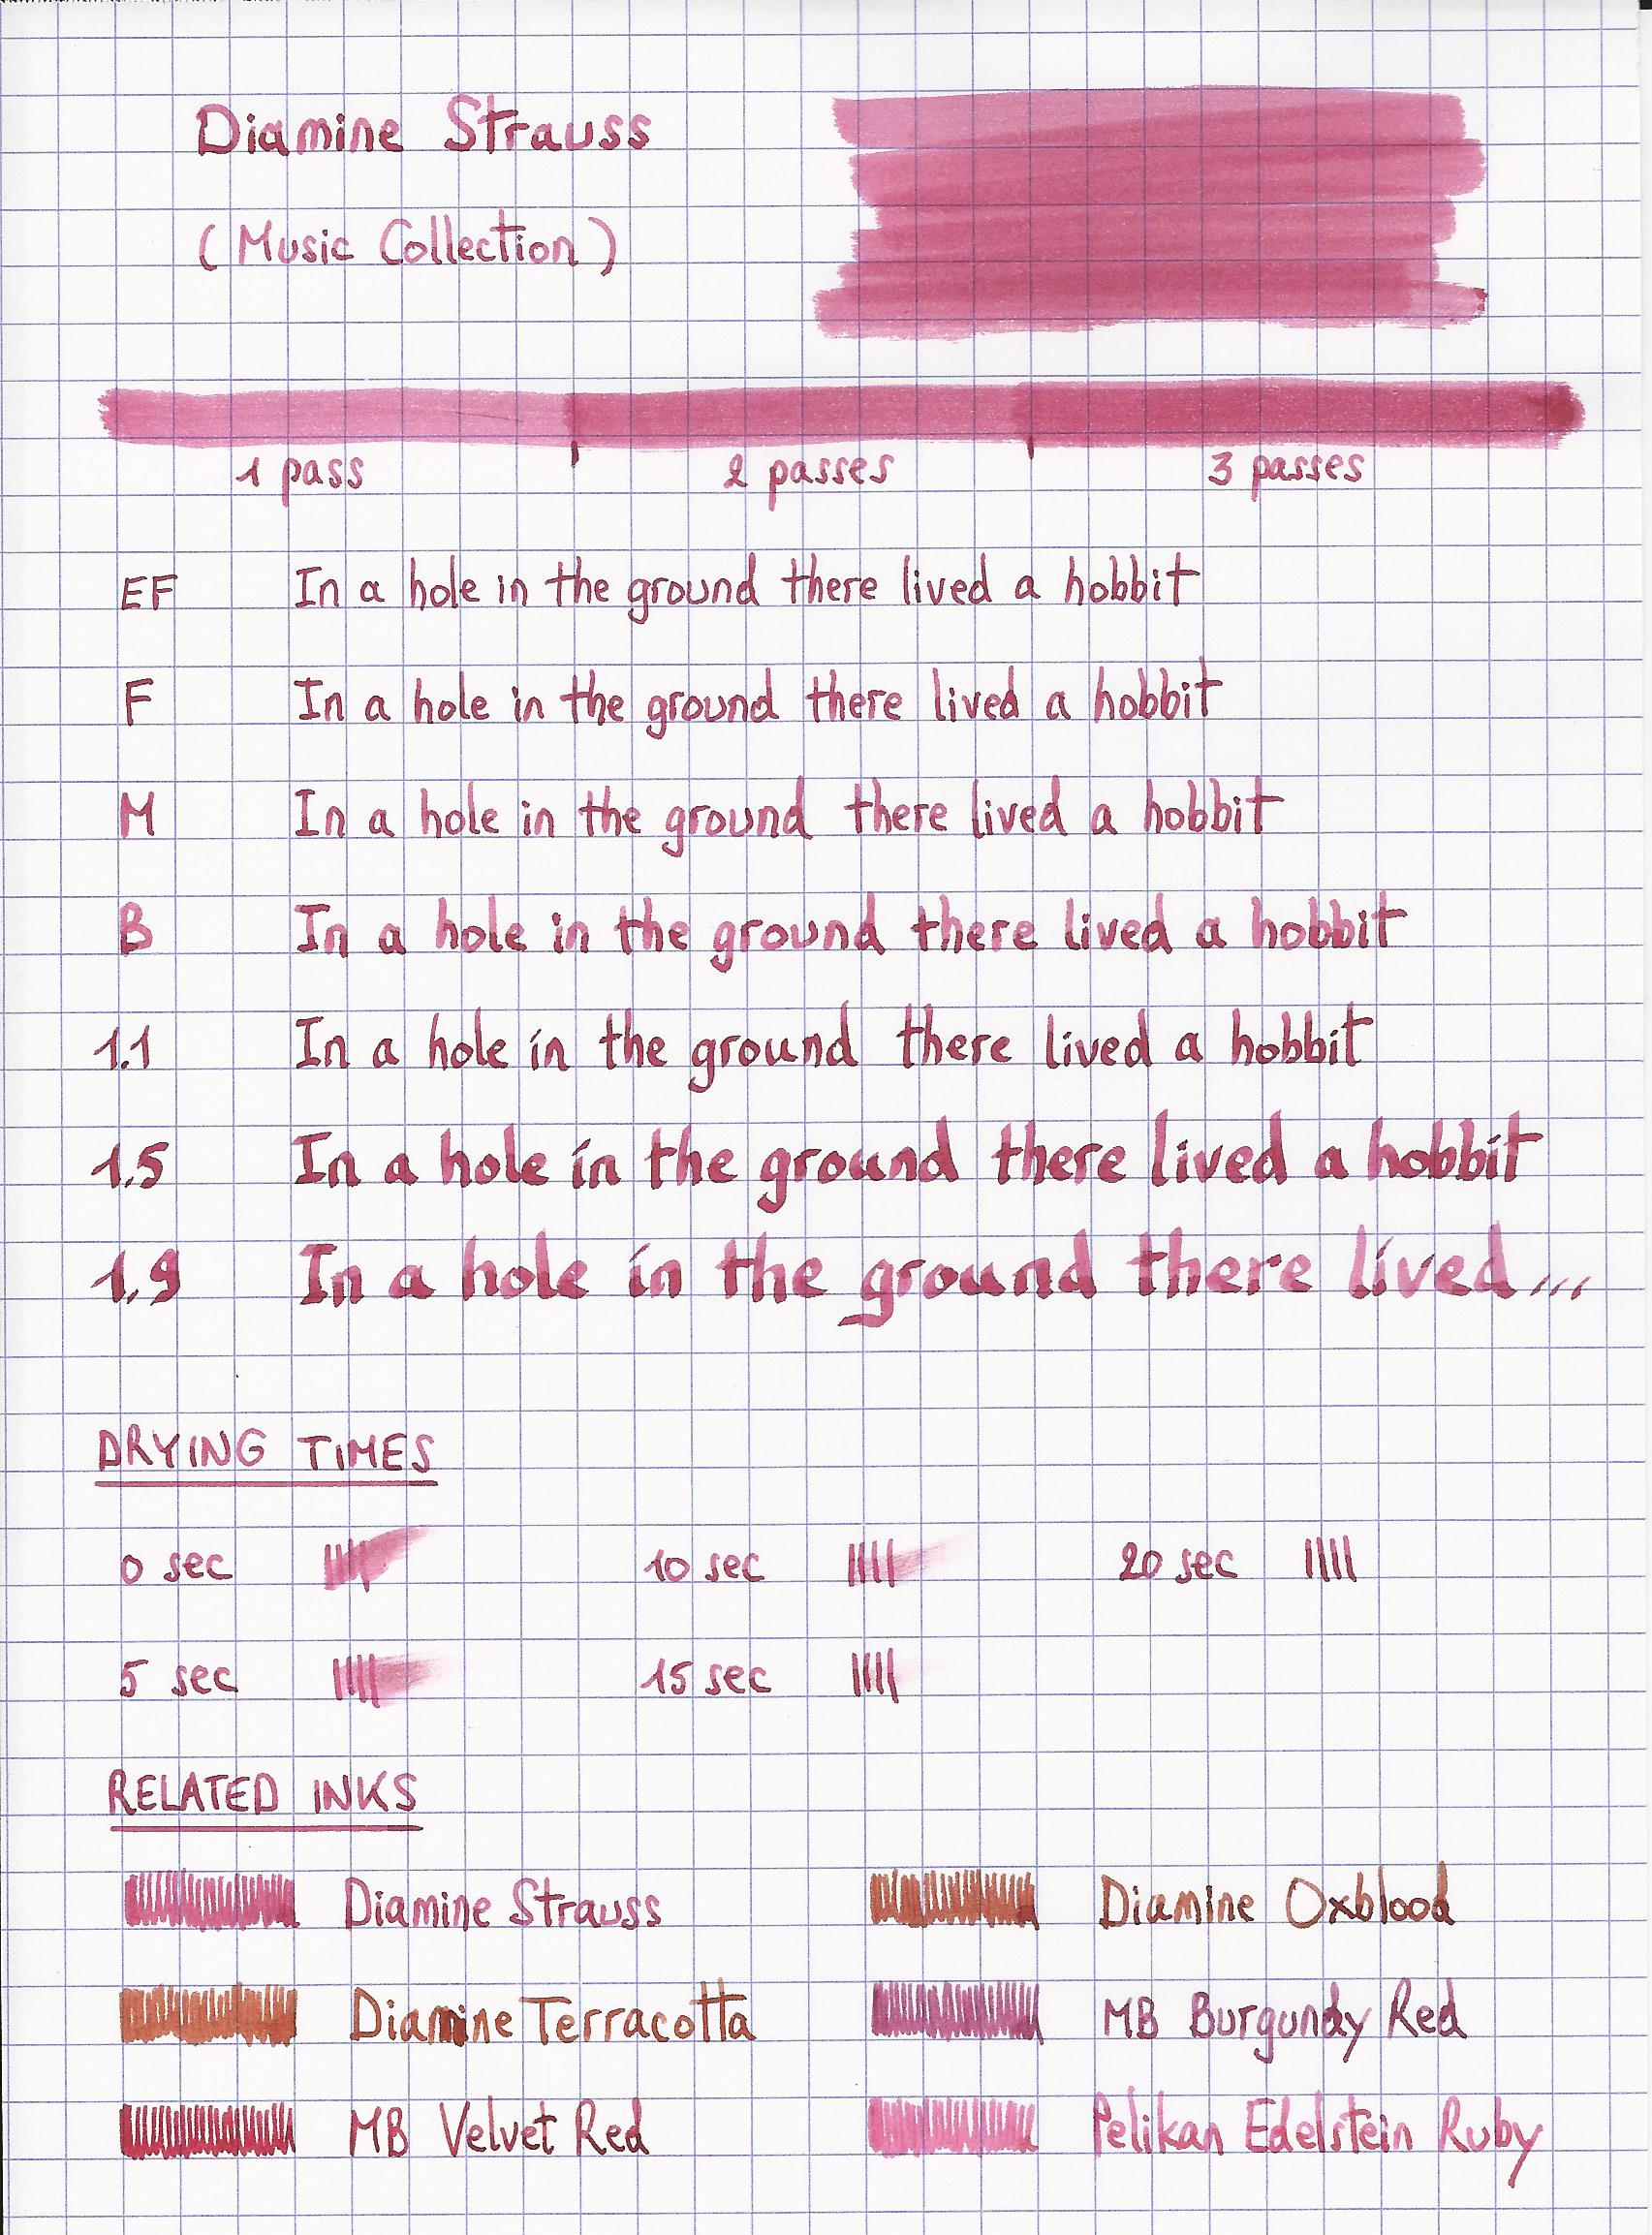 Diamine Strauss
(Music Collection)
1 pass 2 passes 3 passes
EF In a hole in the ground there lived a hobbit
F In a hole in the ground there lived a hobbit
M In a hole in the ground there lived a hobbit
B In a hole in the ground there lived a hobbit
1.1 In a hole in the ground there lived a hobbit
1.5 In a hole in the ground there lived a hobbit
1.9 In a hole in the ground there lived...
DRYING TIMES
0 sec 10 sec 20 sec
5 sec 15 sec
RELATED INKS
Diamine Strauss Diamine Oxblood
Diamine Terracotta MB Burgundy Red
MB Velvet Red Pelikan Edelstein Ruby